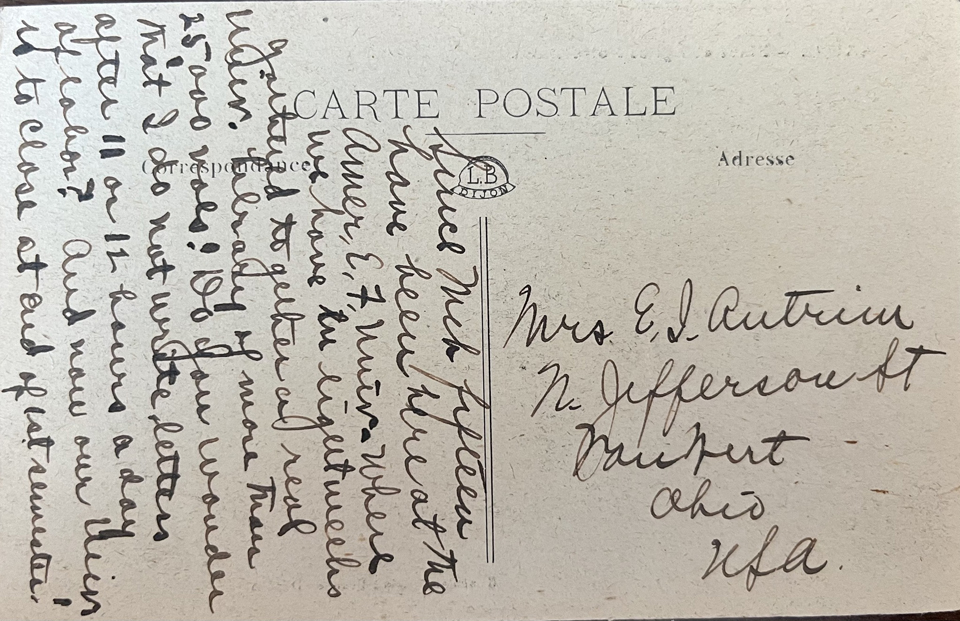 CARTE POSTALE
Correspondance
Adresse
L.B
DIJON
Since Mch fifteen
have been here at the
Amer. E. F. Univ. Where
we have in eight weeks
gathered together a real
Univ. Library of more than
25000 vols! Do you wonder
that I do not write letters
after 11 or 12 hours a day
of labor? And now our Univ
is to close at end of 1st semester!
Mrs. E. I. Antrim
N. Jefferson St
Van Wert
Ohio
USA.